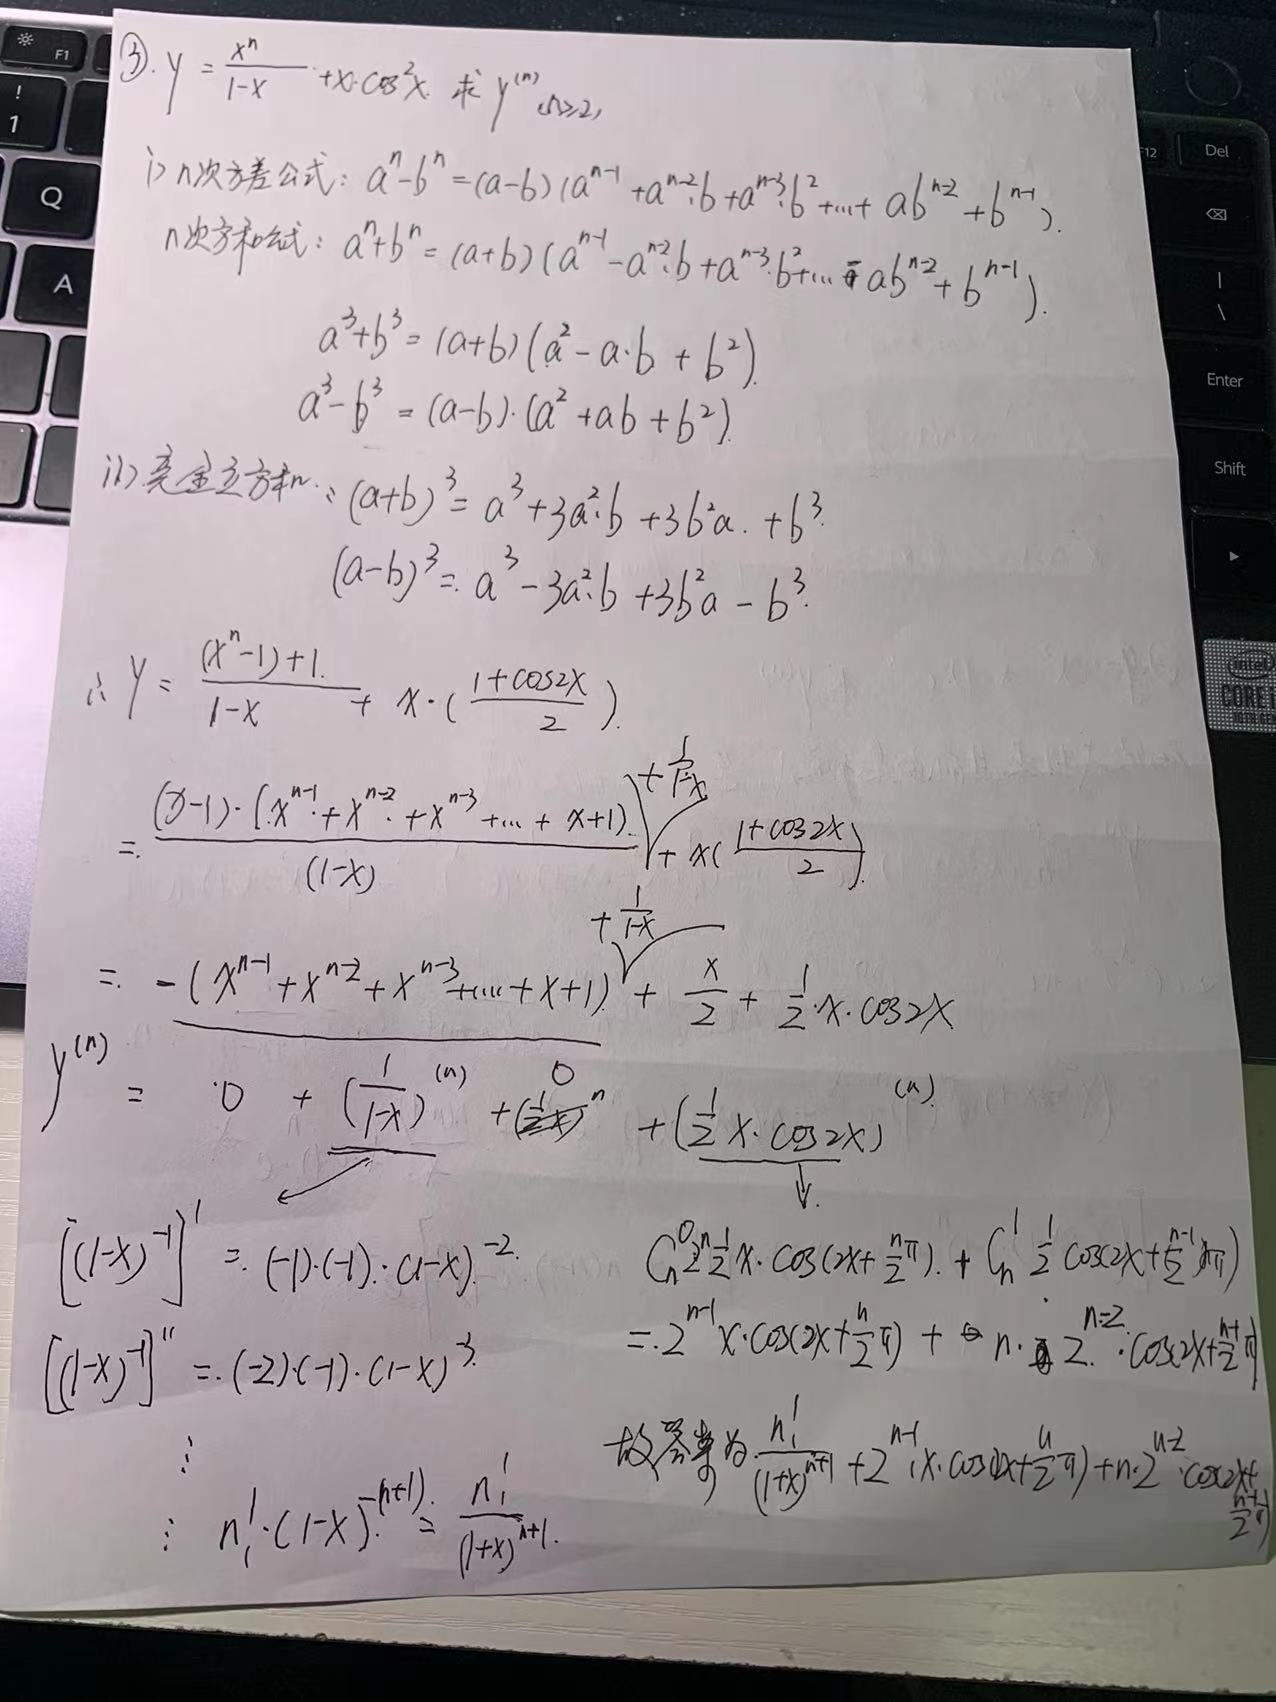 ③. y = x^n/(1-x) + x·cos²x. 求 y^(n) (n≥2)
i) n次方差公式: a^n-b^n=(a-b)(a^(n-1)+a^(n-2)·b+a^(n-3)·b²+...+ab^(n-2)+b^(n-1)).
n次方和公式: a^n+b^n=(a+b)(a^(n-1)-a^(n-2)·b+a^(n-3)·b²+...-ab^(n-2)+b^(n-1)).
a³+b³=(a+b)(a²-a·b+b²).
a³-b³=(a-b)·(a²+ab+b²).
ii) 完全立方和: (a+b)³=a³+3a²·b+3b²a.+b³.
(a-b)³=.a³-3a²·b+3b²a-b³.
∴ y = ((x^n-1)+1.)/(1-x) + x·((1+cos2x)/2).
=. (x-1)·(x^(n-1)·+x^(n-2)·+x^(n-3)+...+x+1)/(1-x) + 1/(1-x) + x((1+cos2x)/2).
=. -(x^(n-1)+x^(n-2)+x^(n-3)+...+x+1) + 1/(1-x) + x/2 + 1/2·x·cos2x
y^(n) = 0 + (1/(1-x))^(n) + 0 + (1/2 x·cos2x)^(n).
[(1-x)^-1]' =. (-1)·(-1)·(1-x)^-2.
[(1-x)^-1]'' =. (-2)·(-1)·(1-x)^-3.
⋮
⋮ n!·(1-x)^-(n+1). = n!/(1+x)^(n+1).
C_n^0 2^n 1/2 x·cos(2x+n/2 π). + C_n^1 1/2 cos(2x+(n-1)/2 π)
=. 2^(n-1) x·cos(2x+n/2 π) + n·2^(n-2)·cos(2x+(n-1)/2 π)
故答案为 n!/(1+x)^(n+1) + 2^(n-1)·x·cos(2x+n/2 π)+n·2^(n-2)·cos(2x+(n-1)/2 π)
F1
!
1
Q
A
F12
Del
|
\
Enter
Shift
intel
CORE